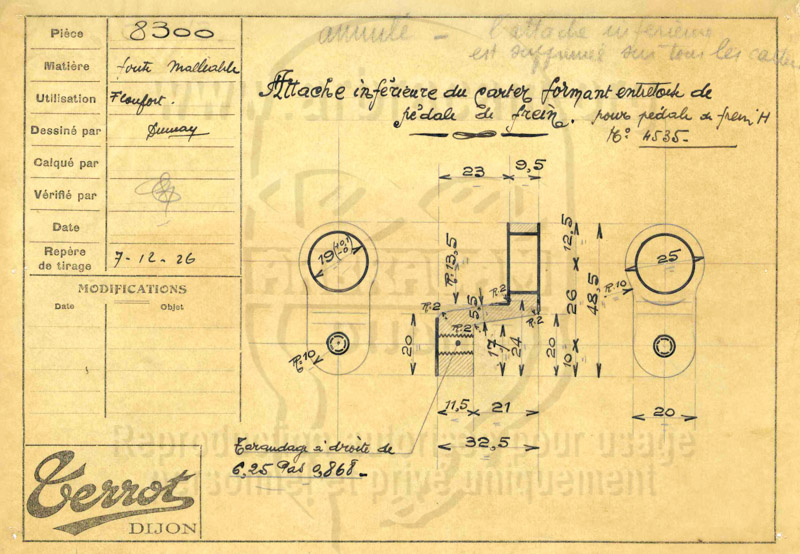 Pièce 8300
Matière fonte Malléable
Utilisation
Dessiné par
Calqué par
Vérifié par
Date
Repère de tirage 7-12-26
MODIFICATIONS
Date Objet
annulé - l'attache inférieure
est supprimée sur tous les
Attache inférieure du carter formant entretoise de
pédale de frein. pour pédale de frein H
N° 4535-
23 9,5
19
R.13,5
12,5
26
48,5
25
R.10
R.2
R.2
R.2
R.2
5,5
20
17
24
20
10
R.10
11,5 21
32,5
20
Taraudage à droite de
6,25 Pas 0,868-
Terrot
DIJON
Reproduction autorisée pour usage
personnel et privé uniquement